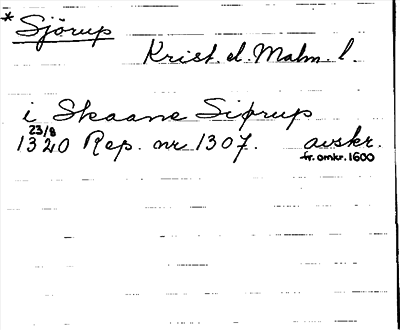 * Sjörup
Krist. el. Malm. l.
i Skaane Siørup
23/8
1320 Rep. nr 1307. avskr.
fr. omkr. 1600